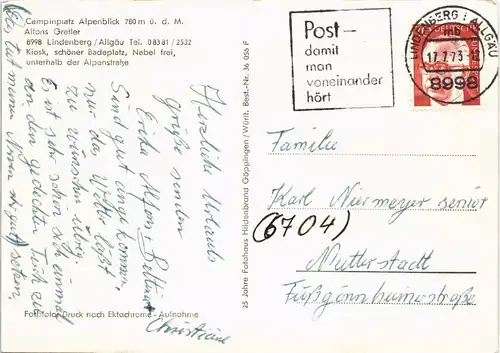 Campingplatz Alpenblick 780 m ü. d. M.
Alfons Gretler
8998 Lindenberg/Allgäu Tel. 08381/2502
Kiosk, schöner Badeplatz, Nebel frei,
unterhalb der Alpenstraße
Post –
damit
man
voneinander
hört
LINDENBERG i ALLGÄU
17.7.73-12
8998
Herzliche Urlaubs
Grüße senden
Erika Alfons Bettina
Christiane
Sind gut angekommen,
nur das Wetter läßt
zu wünschen übrig.
Es ist sehr schön sich einmal
an den gedeckten Tisch zu
setzen,
tut meinen Nerven so gut
25 Jahre Fotohaus Hildenbrand Göppingen/Württ. Best.-Nr. 36 056 F
Familie
Karl Niermeyer senior
(6704)
Mutterstadt
Fußgönnheimerstraße
Druck nach Ektachrome-Aufnahme